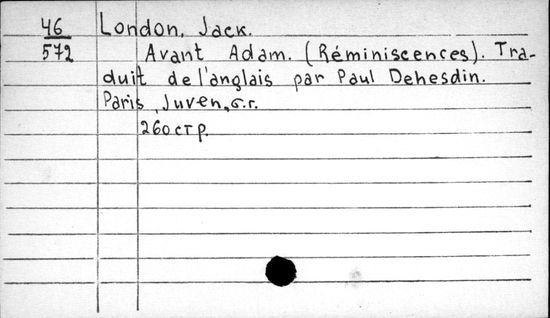 46 London, Jack.
572 Avant Adam. (Réminiscences). Tra-
duit de l'anglais par Paul Dehesdin.
Paris, Juven, б.г.
260 стр.